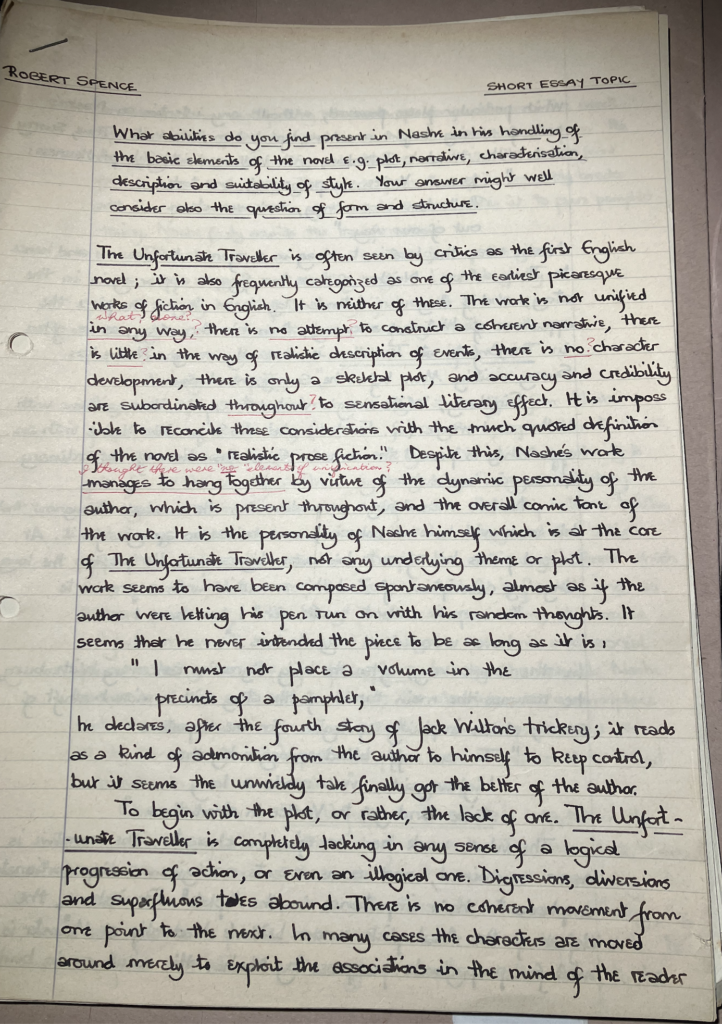 ROBERT SPENCE
SHORT ESSAY TOPIC
What abilities do you find present in Nashe in his handling of
the basic elements of the novel e.g. plot, narrative, characterisation,
description and suitability of style. Your answer might well
consider also the question of form and structure.
The Unfortunate Traveller is often seen by critics as the first English
novel; it is also frequently categorized as one of the earliest picaresque
works of fiction in English. It is neither of these. The work is not unified
what, none?
in any way,? there is no attempt? to construct a coherent narrative, there
is little? in the way of realistic description of events, there is no? character
development, there is only a skeletal plot, and accuracy and credibility
are subordinated throughout? to sensational literary effect. It is imposs
-ible to reconcile these considerations with the much quoted definition
of the novel as "realistic prose fiction." Despite this, Nashe's work
I thought there were "no" elements of unification?
manages to hang together by virtue of the dynamic personality of the
author, which is present throughout, and the overall comic tone of
the work. It is the personality of Nashe himself which is at the core
of The Unfortunate Traveller, not any underlying theme or plot. The
work seems to have been composed spontaneously, almost as if the
author were letting his pen run on with his random thoughts. It
seems that he never intended the piece to be as long as it is,
" I must not place a volume in the
precincts of a pamphlet,"
he declares, after the fourth story of Jack Wilton's trickery; it reads
as a kind of admonition from the author to himself to keep control,
but it seems the unwieldy tale finally got the better of the author.
To begin with the plot, or rather, the lack of one. The Unfort-
-unate Traveller is completely lacking in any sense of a logical
progression of action, or even an illogical one. Digressions, diversions
and superfluous tales abound. There is no coherent movement from
one point to the next. In many cases the characters are moved
around merely to exploit the associations in the mind of the reader